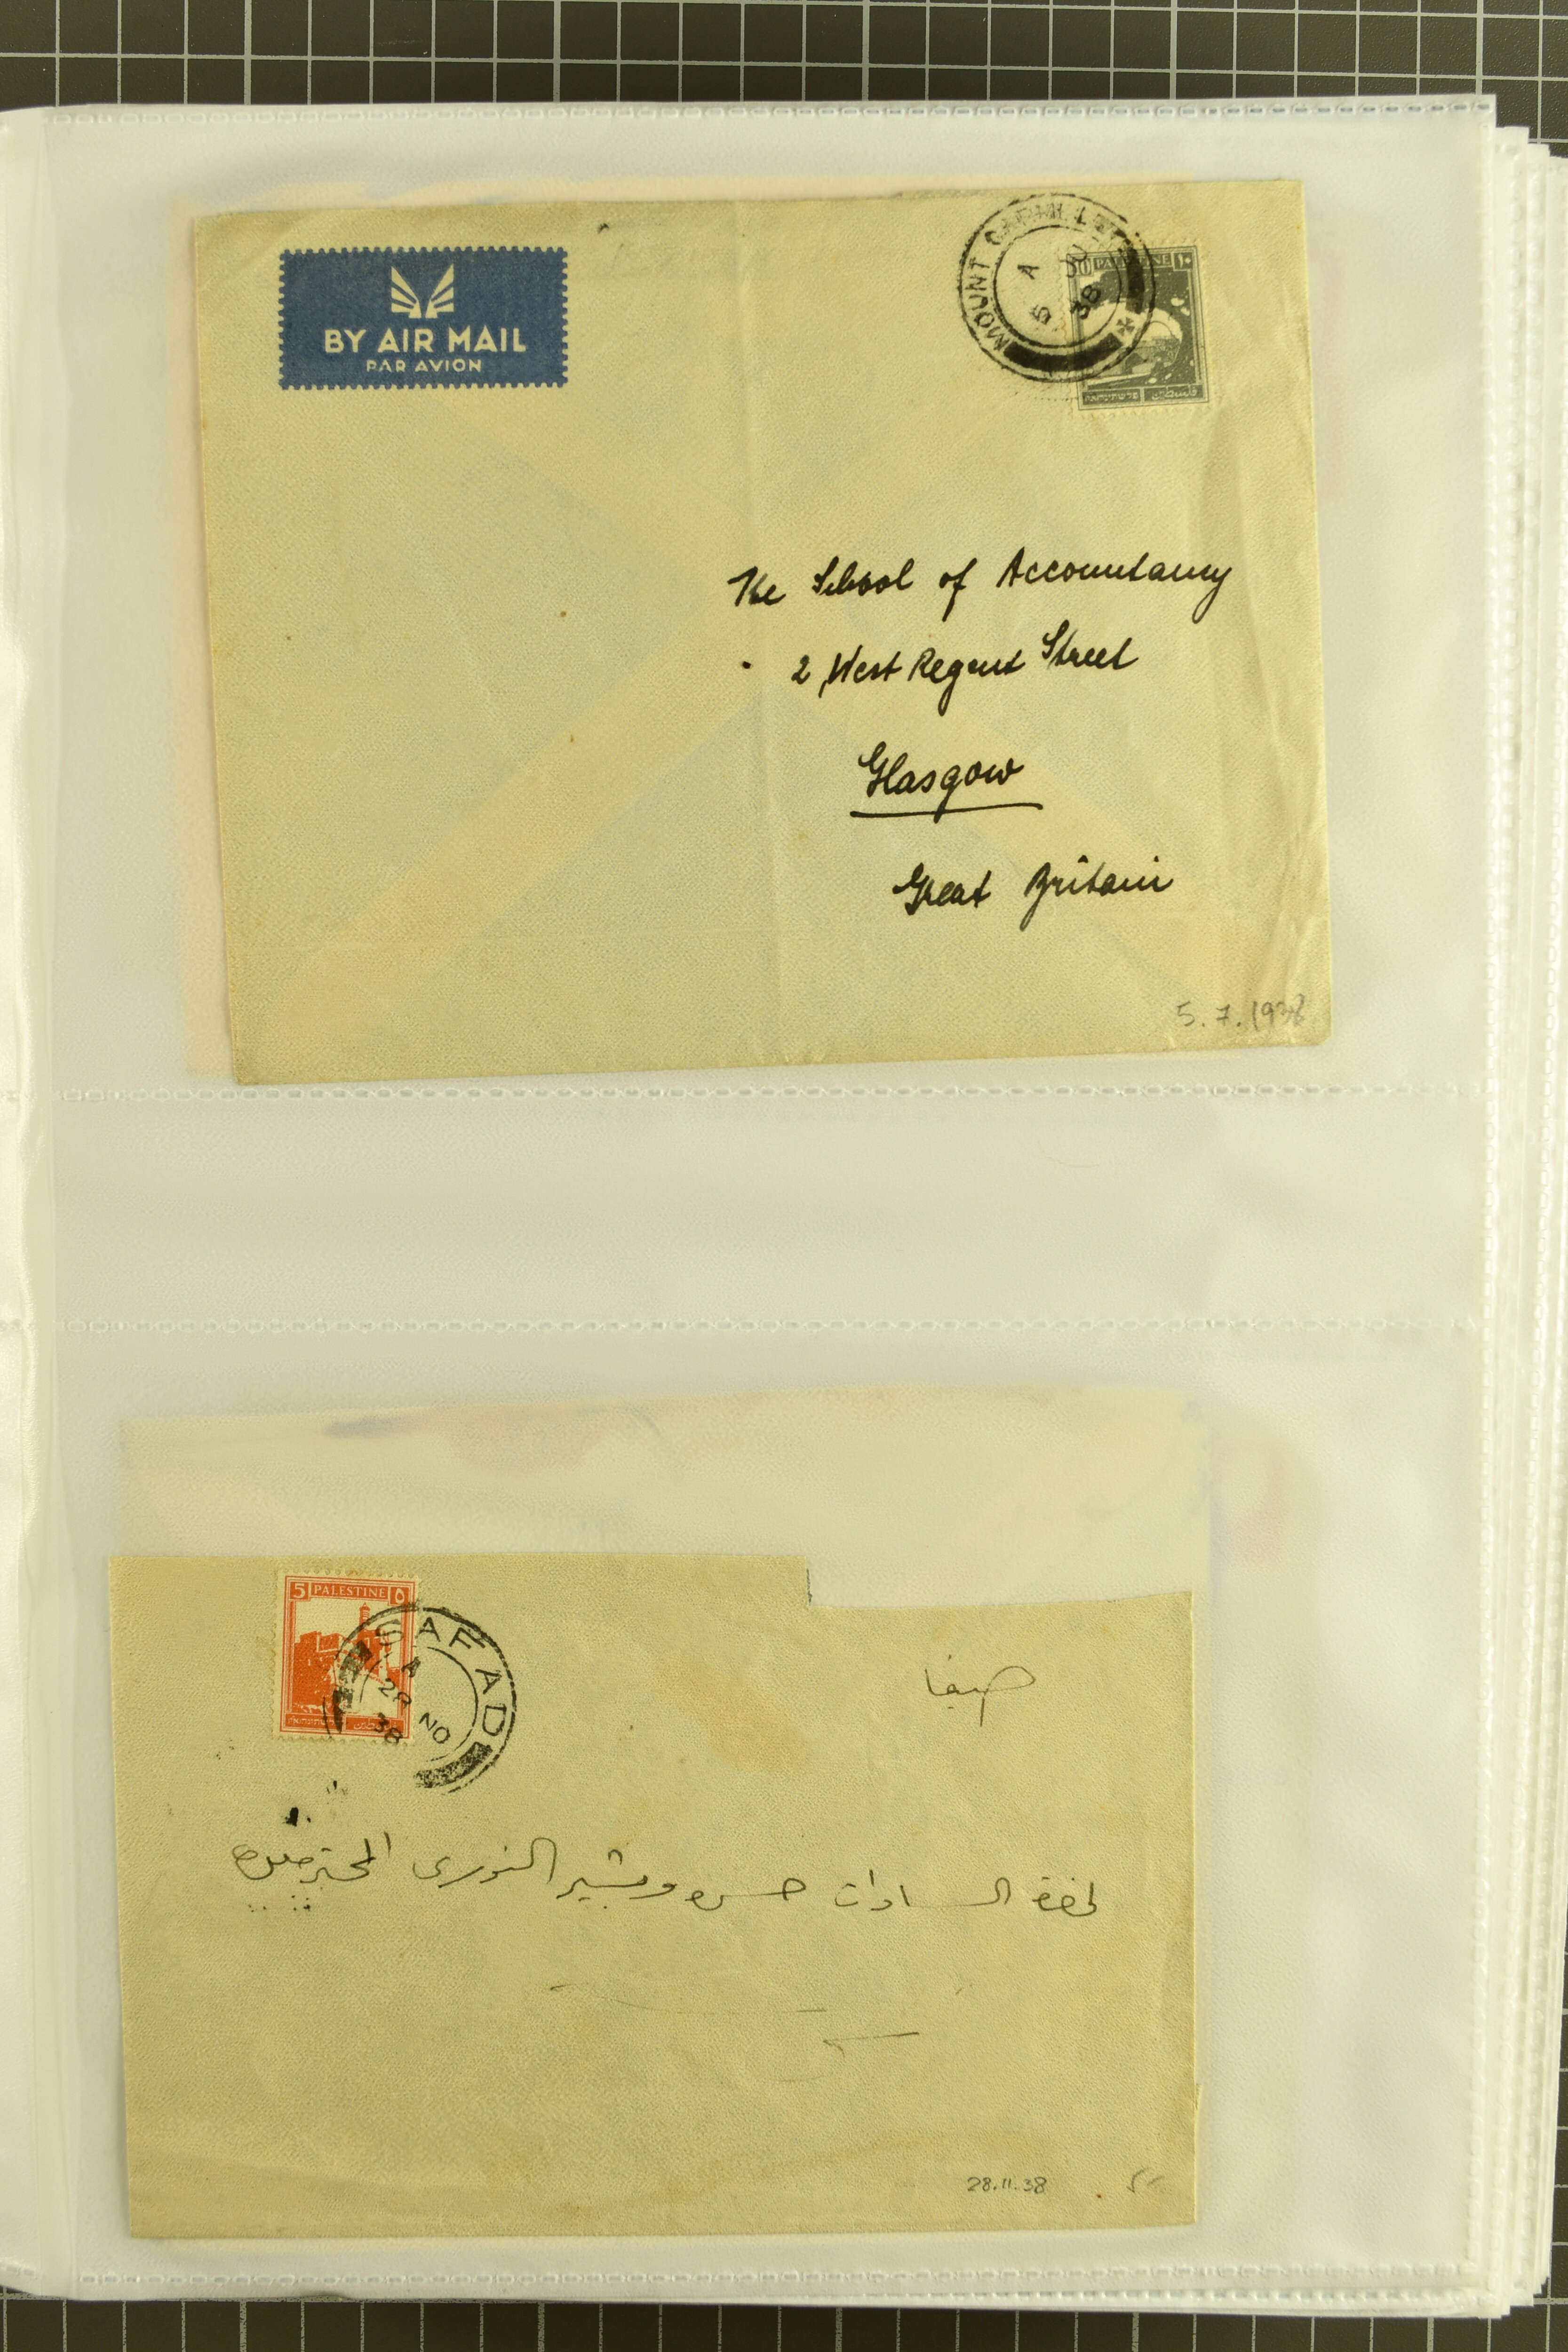 BY AIR MAIL
PAR AVION
MOUNT CARMEL
A
5 JU
38
10 PALESTINE ١٠
فلسطين
The School of Accountancy
2, West Regent Street
Glasgow
Great Britain
5.7.1938
5 PALESTINE ٥
فلسطين
SAFAD
A
28 NO
38
حيفا
لحضرة السادات حسن وبشير النوري المحترمين
28.11.38